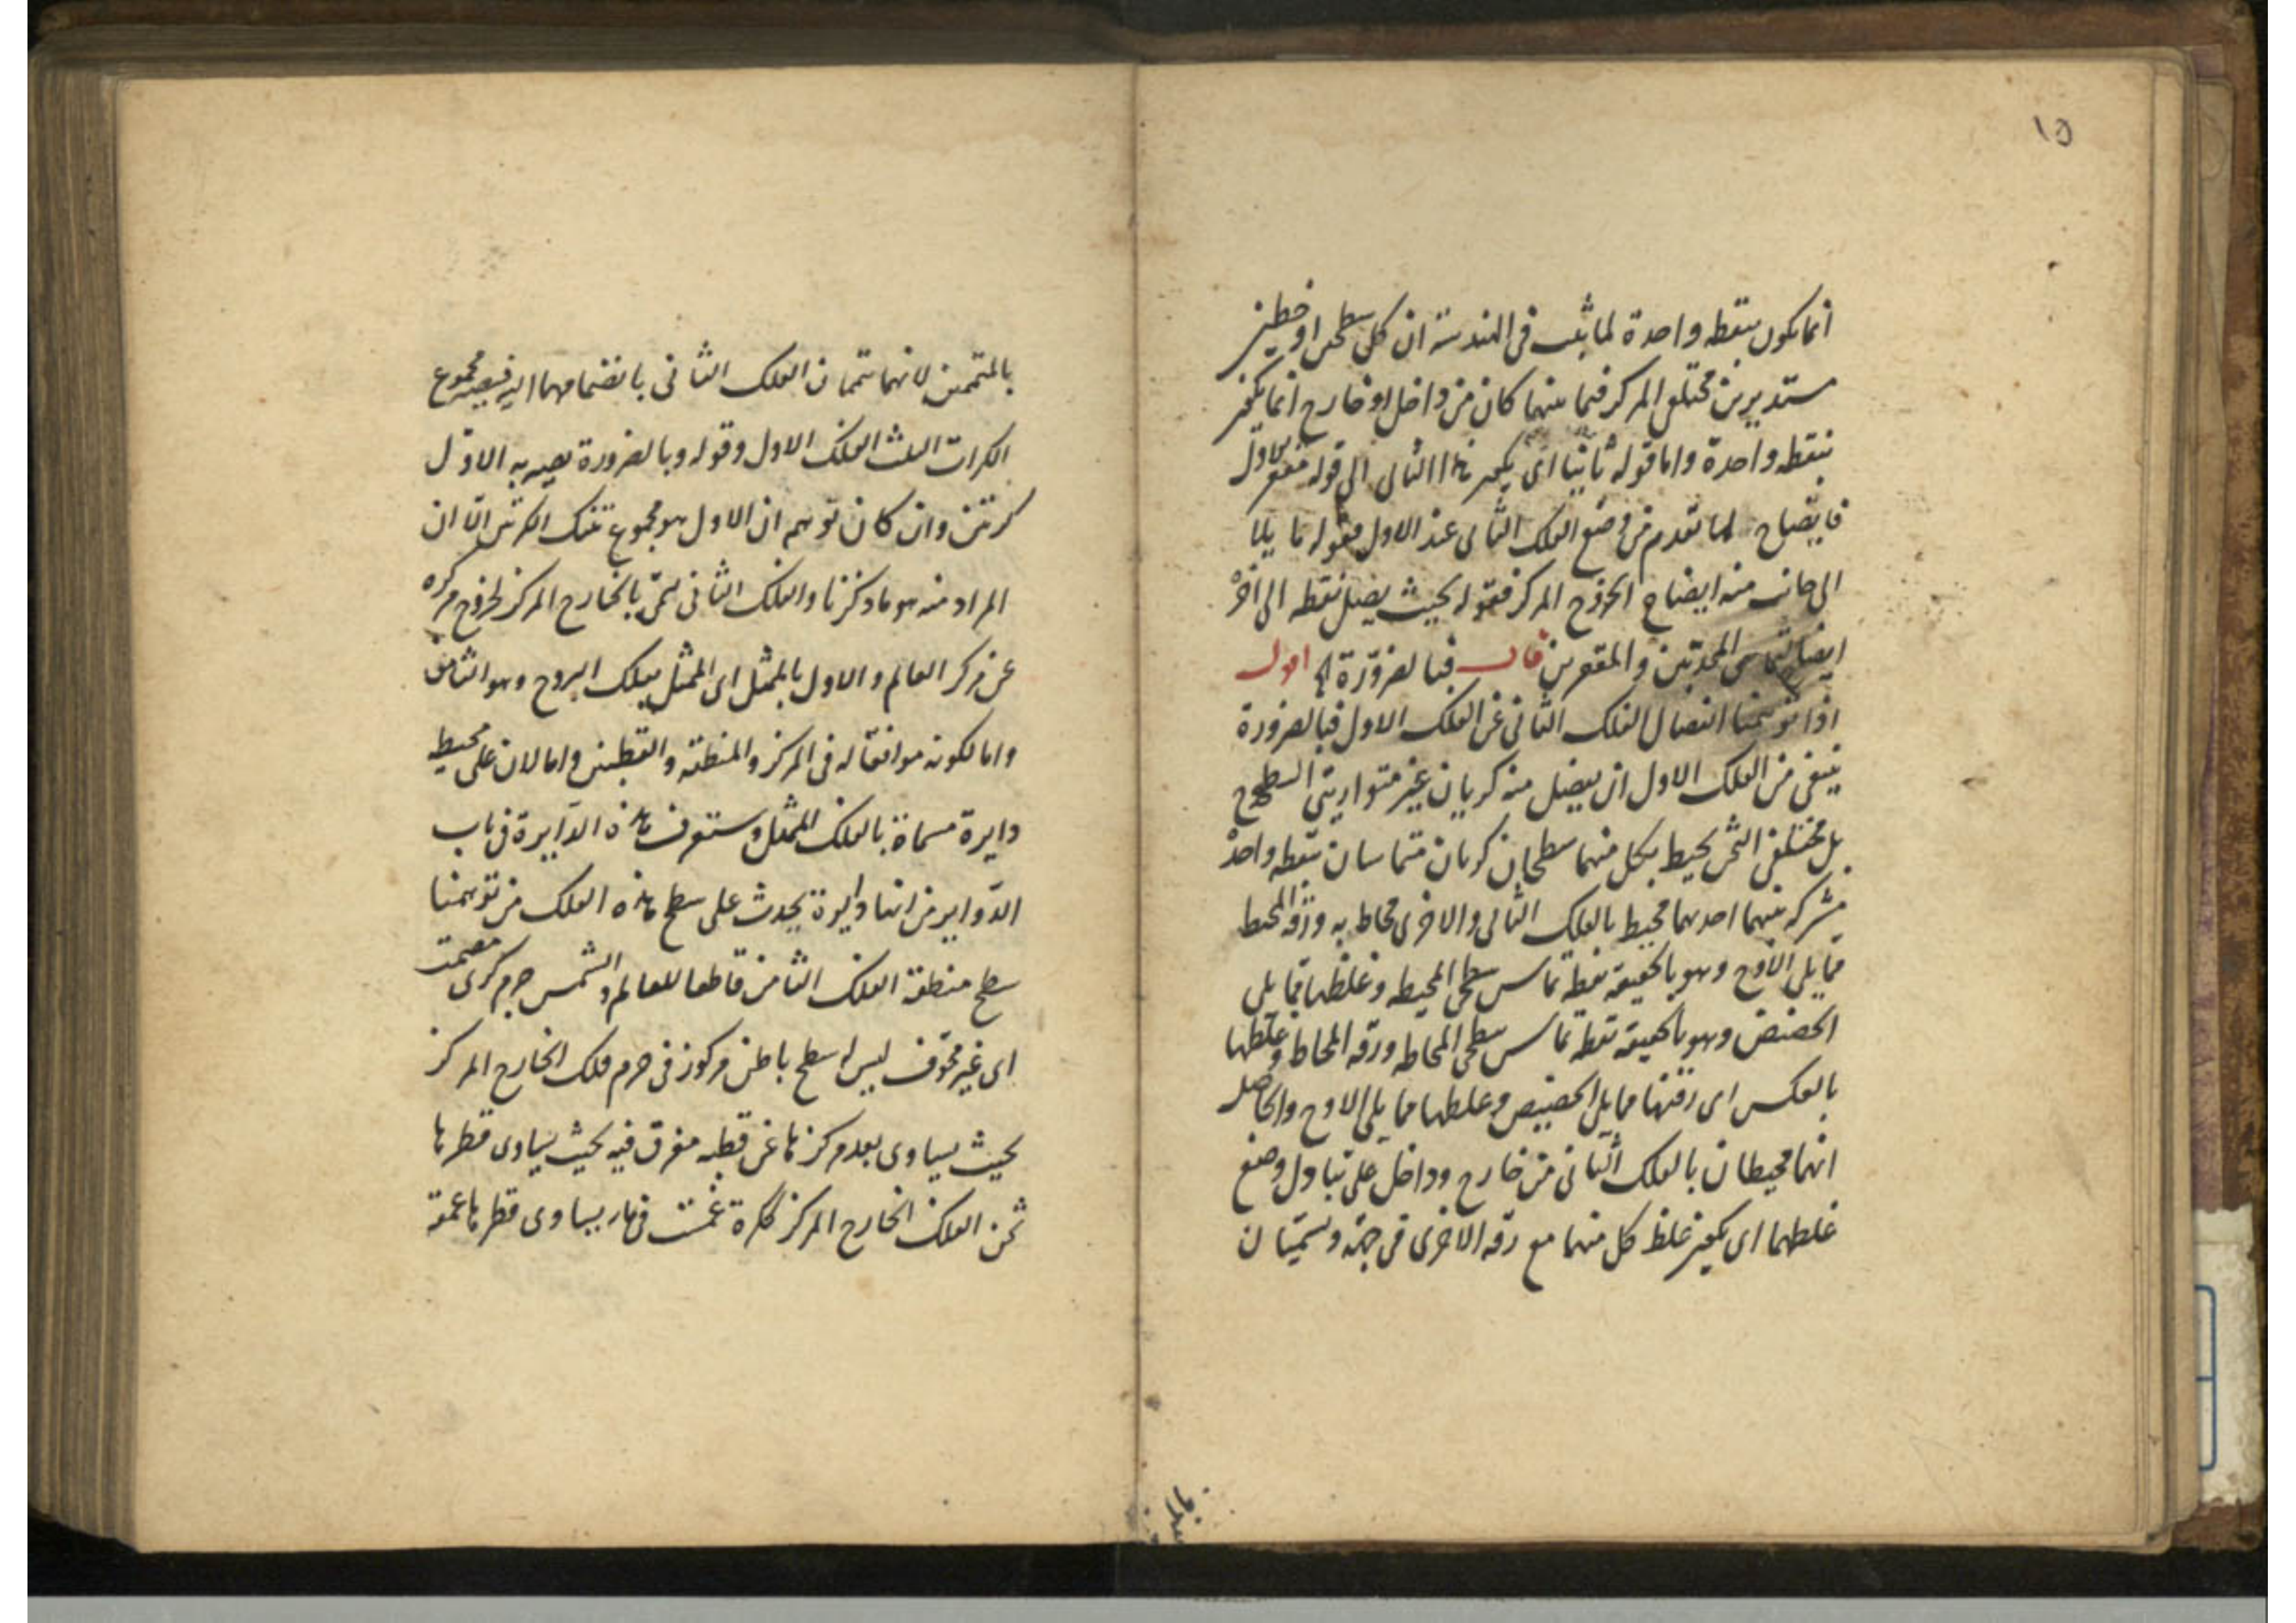 ١٥
انما يكون بنقطه واحدة لما ثبت فى الهندسة ان كل سطحين او خطين
مستديرين مختلفى المركز فيما بينهما كان من داخل او خارج انما
بنقطه واحدة واما قوله ثانيا اى الثانى الى قوله مقعر الاول
فايضاح لما تقدم من وضع الفلك الثانى عند الاول فقوله مايلا
الى جانب منه ايضاح لخروج المركز فقوله بحيث يصل نقطه الى اخره
ايضاح لتماسى المحدبين والمقعرين قال فبالضرورة الخ اقول
اذا توهمنا انفصال الفلك الثانى عن الفلك الاول فبالضرورة
ينبغى من الفلك الاول ان يفضل منه كريان غير متوازيتى السطوح
بل مختلفى الثخن يحيط بكل منهما سطحان كريان متماسان بنقطه واحدة
مشتركه بينهما احدهما محيط بالفلك الثانى والاخرى محاط به ورقه المحيط
مما يلى الاوج وهو بالحقيقه نقطة تماس سطحى المحيطه وغلظها مما يلى
الحضيض وهو بالحقيقه نقطة تماس سطحى المحاطه ورقه المحاط وغلظها
بالعكس اى رقتها مما يلى الحضيض وغلظها مما يلى الاوج والحاصل
انهما محيطان بالفلك الثانى من خارج وداخل على تبادل وضع
غلظهما اى يكون غلظ كل منهما مع رقه الاخرى فى جهة وتسميان
بالمتممين لانهما تتممان الفلك الثانى بانضمامهما اليه فيصير مجموع
الكرات الثلث الفلك الاول وقوله وبالضرورة يصير به الاول
كرتين وان كان توهم ان الاول هو مجموع تينك الكرتين الا ان
المراد منه هو ما ذكرنا والفلك الثانى يسمى بالخارج المركز لخروج مركزه
عن مركز العالم والاول بالممثل اى الممثل بفلك البروج وهو الثامن
واما لكونه موافقا له فى المركز والمنطقة والقطبين واما لان على محيط
دايرة مسماة بالفلك الممثل وستعرف هذه الدايرة فى باب
الدواير من انها دايرة يحدث على سطح هذه الفلك من توهمنا
سطح منطقة الفلك الثامن قاطعا للعالم والشمس جرم كرى مصمت
اى غير مجوف ليس له سطح باطن مركوز فى جرم فلك الخارج المركز
بحيث يساوى بعد مركزها عن قطبه مغرق فيه بحيث يساوى قطرها
ثخن الفلك الخارج المركز ككرة غمست فى ما يساوى قطرها عمقه